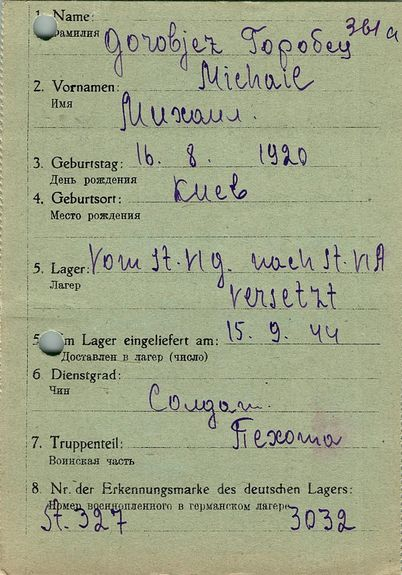 1. Name: 361 a
Фамилия Gorobjez Горобец
2. Vornamen: Michail
Имя Михаил.
3. Geburtstag: 16. 8. 1920
День рождения
4. Geburtsort: Киев
Место рождения
5. Lager: Vom St. VI g. nach St. VI A
Лагер versetzt
Im Lager eingeliefert am: 15. 9. 44
Доставлен в лагер (число)
6. Dienstgrad:
Чин Солдат.
7. Truppenteil: Пехота
Воинская часть
8. Nr. der Erkennungsmarke des deutschen Lagers:
Номер военнопленного в германском лагере
St. 327 3032